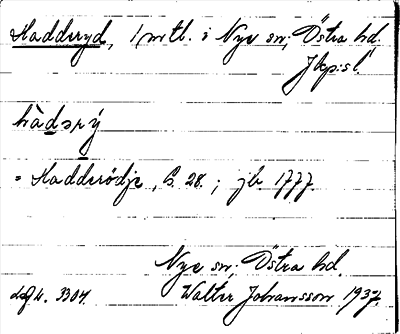 Hadderyd, 1 mtl. i Nye sn; Östra hd.
Jkp:s l.
hàdərý
= Hadderödje, B. 28. ; jb. 1777.
Nye sn; Östra hd.
3304. Walter Johansson 1937.